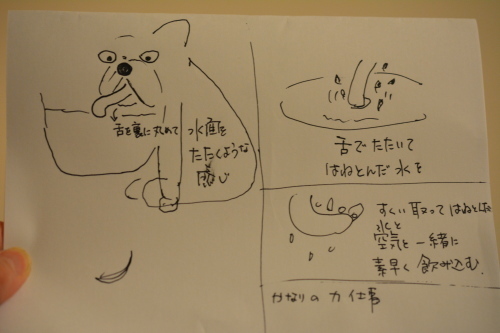 舌を裏に丸めて
水面を
たたくような
感じ
舌でたたいて
はねとんだ水を
すくい取って はねとんだ
水と
空気と一緒に
素早く飲み込む。
かなりの力仕事